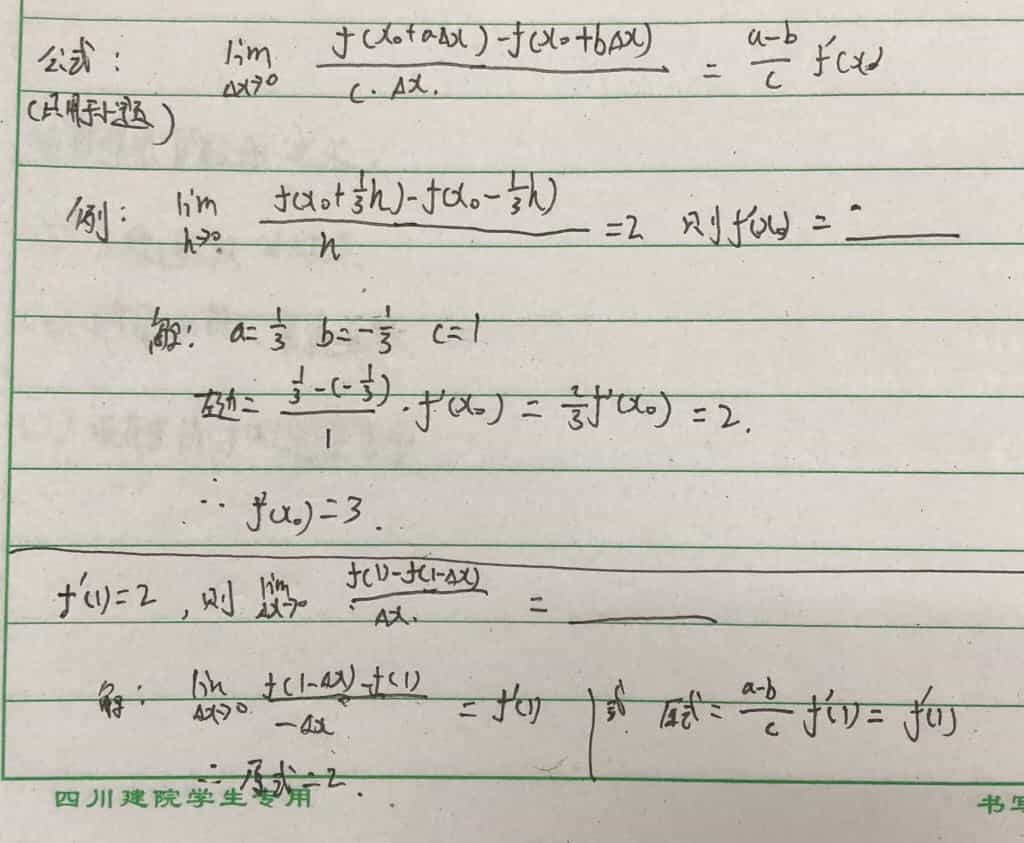 公式： lim Δx→0 f(x₀+aΔx)-f(x₀+bΔx) / c·Δx. = a-b / c f'(x₀)
(只用于小题)
例： lim h→0 f(x₀+1/3h)-f(x₀-1/3h) / h =2 则f'(x₀) = ____
解： a=1/3 b=-1/3 c=1
左边= 1/3-(-1/3) / 1 ·f'(x₀) = 2/3f'(x₀) =2.
∴ f'(x₀)=3.
f'(1)=2，则 lim Δx→0 f(1)-f(1-Δx) / Δx. = ____
解： lim Δx→0 f(1-Δx)-f(1) / -Δx = f'(1) | 或 原式= a-b / c f'(1)= f'(1)
∴ 原式=2.
四川建院学生专用 书写